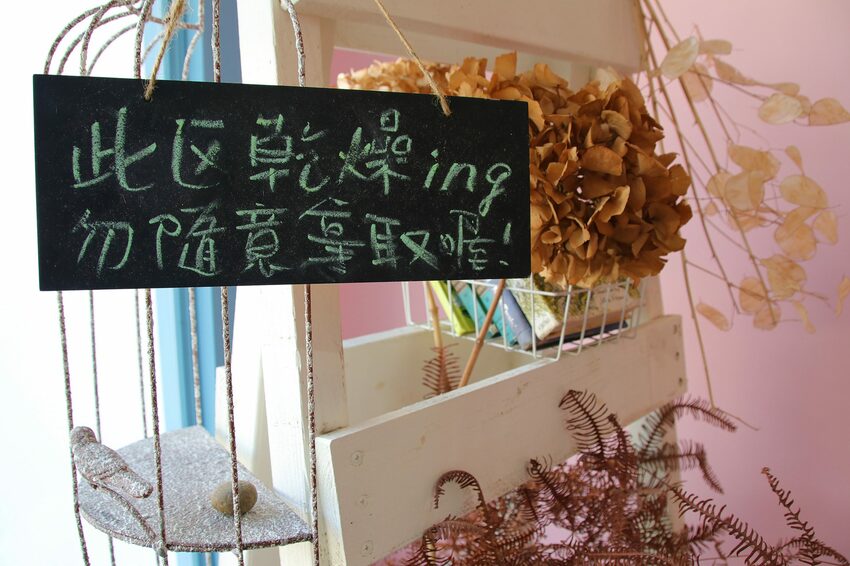 此区乾燥ing
勿隨意拿取喔!